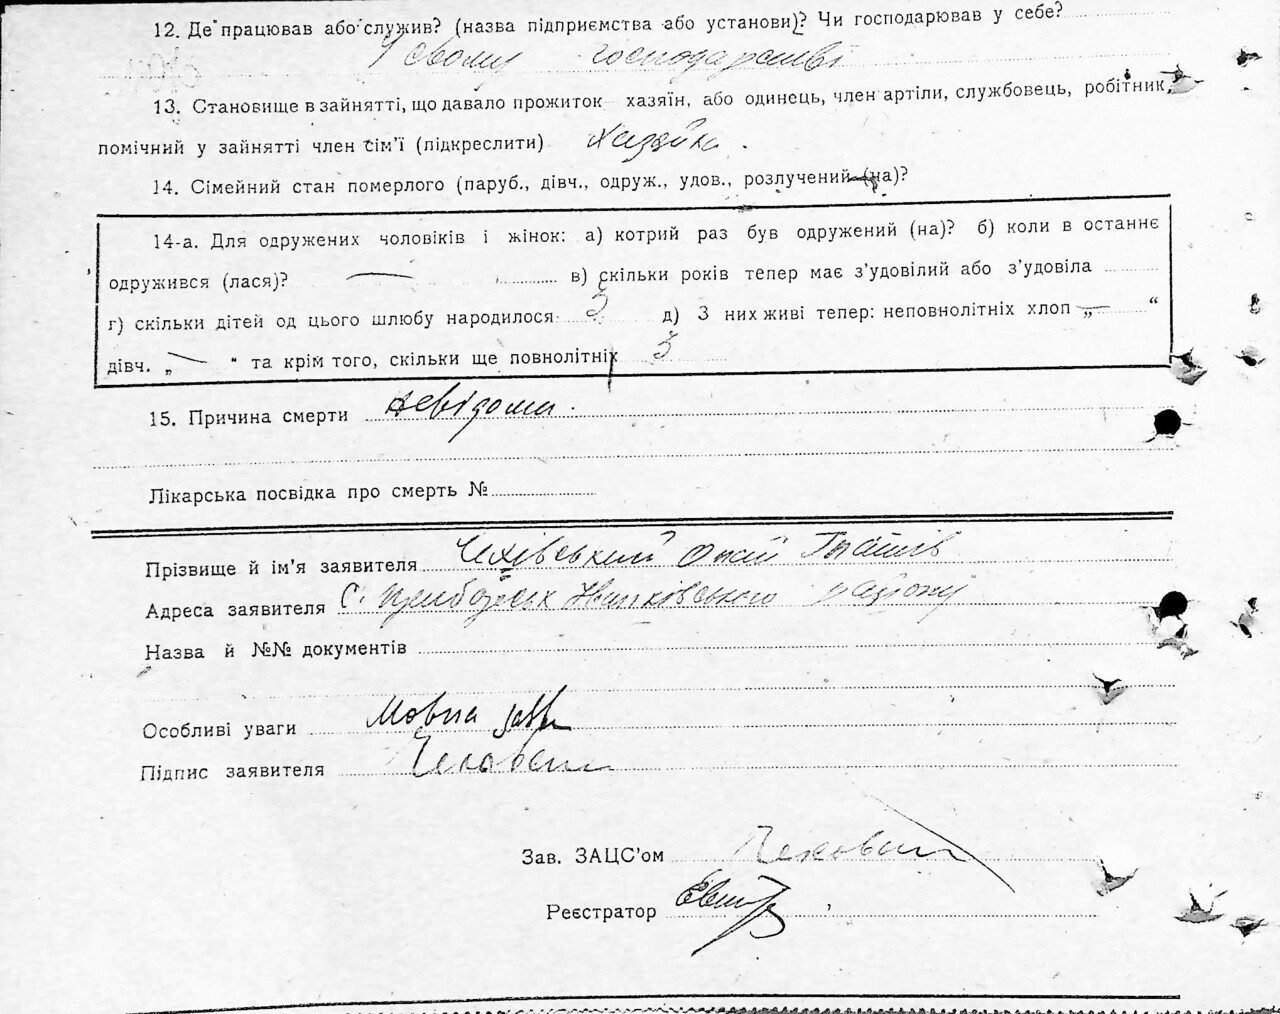 12. Де працював або служив? (назва підприємства або установи)? Чи господарював у себе?
У свому господарстві
13. Становище в зайнятті, що давало прожиток хазяїн, або одинець, член артіли, службовець, робітник,
помічний у зайнятті член сім’ї (підкреслити) Хазяйка.
14. Сімейний стан померлого (паруб., дівч., одруж., удов., розлучений (на)?
14-а. Для одружених чоловіків і жінок: а) котрий раз був одружений (на)? б) коли в останнє
одружився (лася)? — в) скільки років тепер має з’удовілий або з’удовіла
г) скільки дітей од цього шлюбу народилося 3 д) З них живі тепер: неповнолітніх хлоп „—“
дівч. „—“ та крім того, скільки ще повнолітніх 3
15. Причина смерти невідома.
Лікарська посвідка про смерть №
Прізвище й ім’я заявителя Чехівський
Адреса заявителя С. району
Назва й №№ документів
Особливі уваги Мовна
Підпис заявителя
Зав. ЗАЦС’ом
Реєстратор